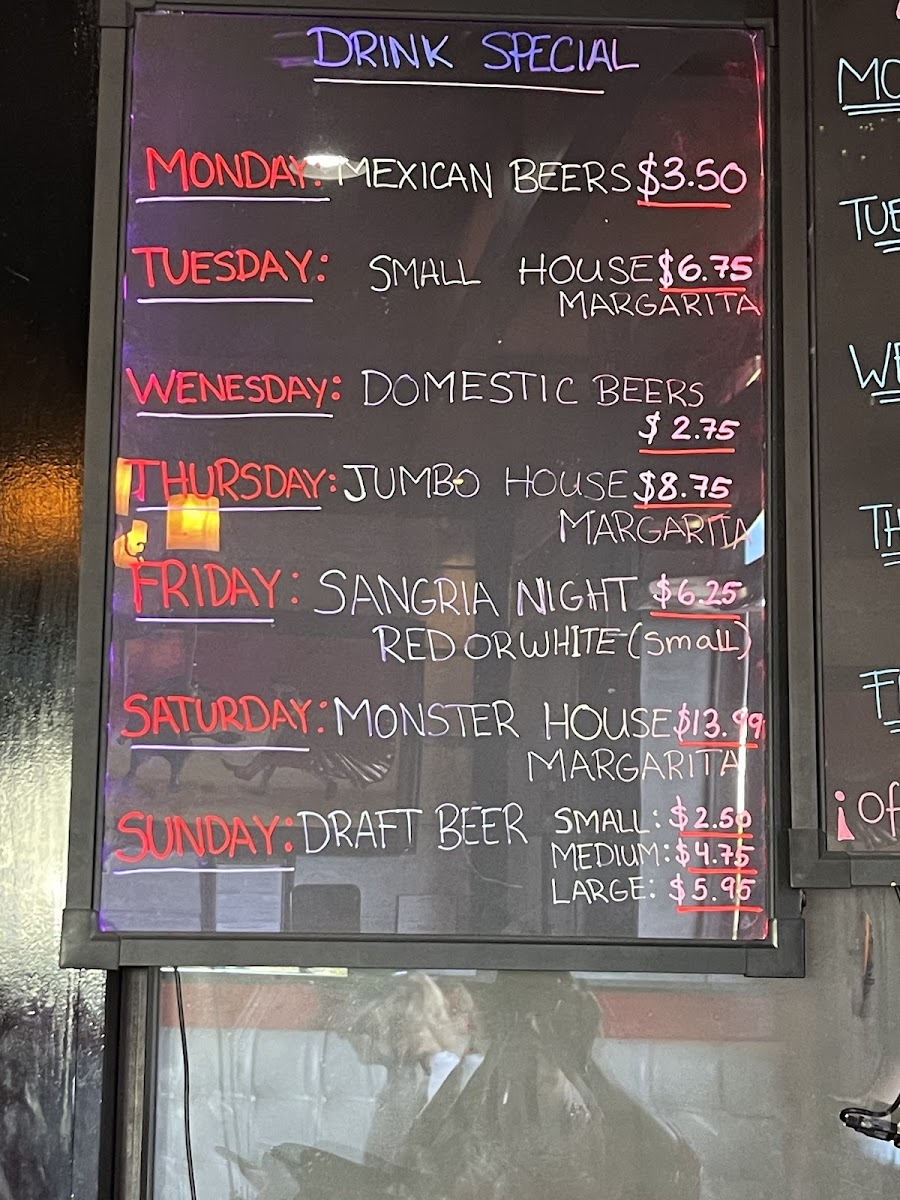 DRINK SPECIAL
MONDAY: MEXICAN BEERS $3.50
TUESDAY: SMALL HOUSE $6.75
MARGARITA
WENESDAY: DOMESTIC BEERS
$2.75
THURSDAY: JUMBO HOUSE $8.75
MARGARITA
FRIDAY: SANGRIA NIGHT $6.25
RED OR WHITE (small)
SATURDAY: MONSTER HOUSE $13.99
MARGARITA
SUNDAY: DRAFT BEER SMALL: $2.50
MEDIUM: $4.75
LARGE: $5.95
MO
TUE
WE
TH
F
¡Of